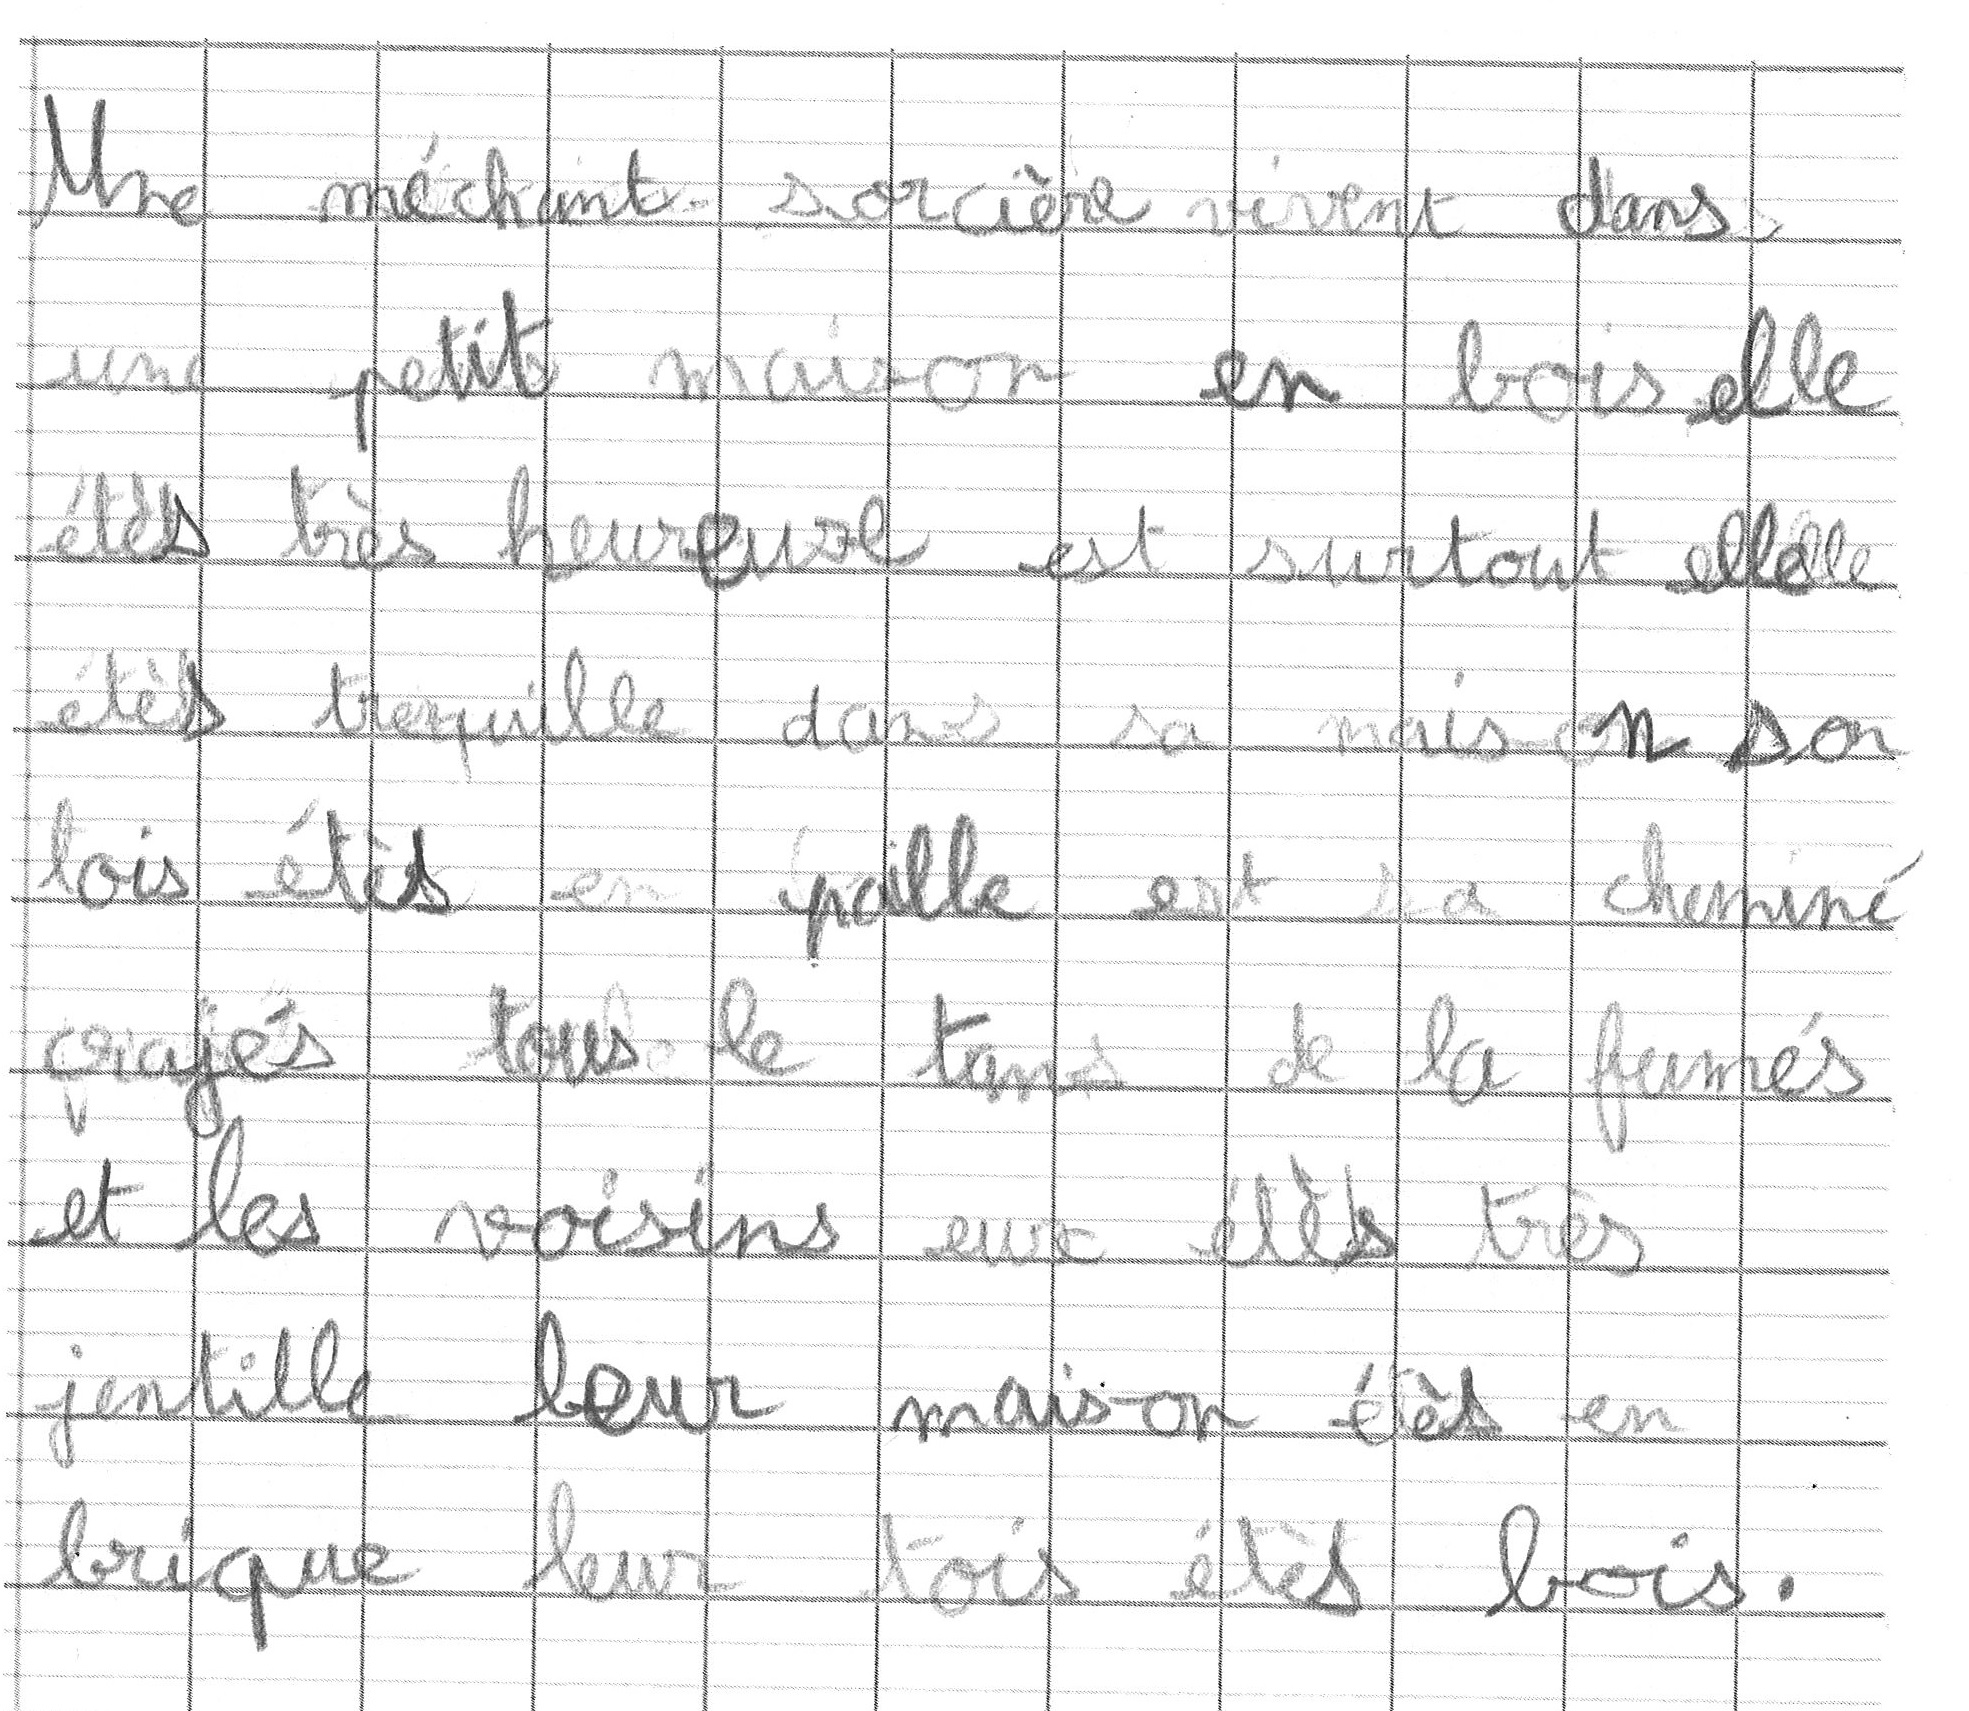 Une méchant sorcière vivent dans
une petit maison en bois elle
étès très heureuse est surtout elle
étès trenquille dans sa maison son
tois étès en paille est sa cheminé
crajés tous le tans de la fumés
et les voisins eux étès très
jentille leur maison étès en
brique leur tois étès bois.